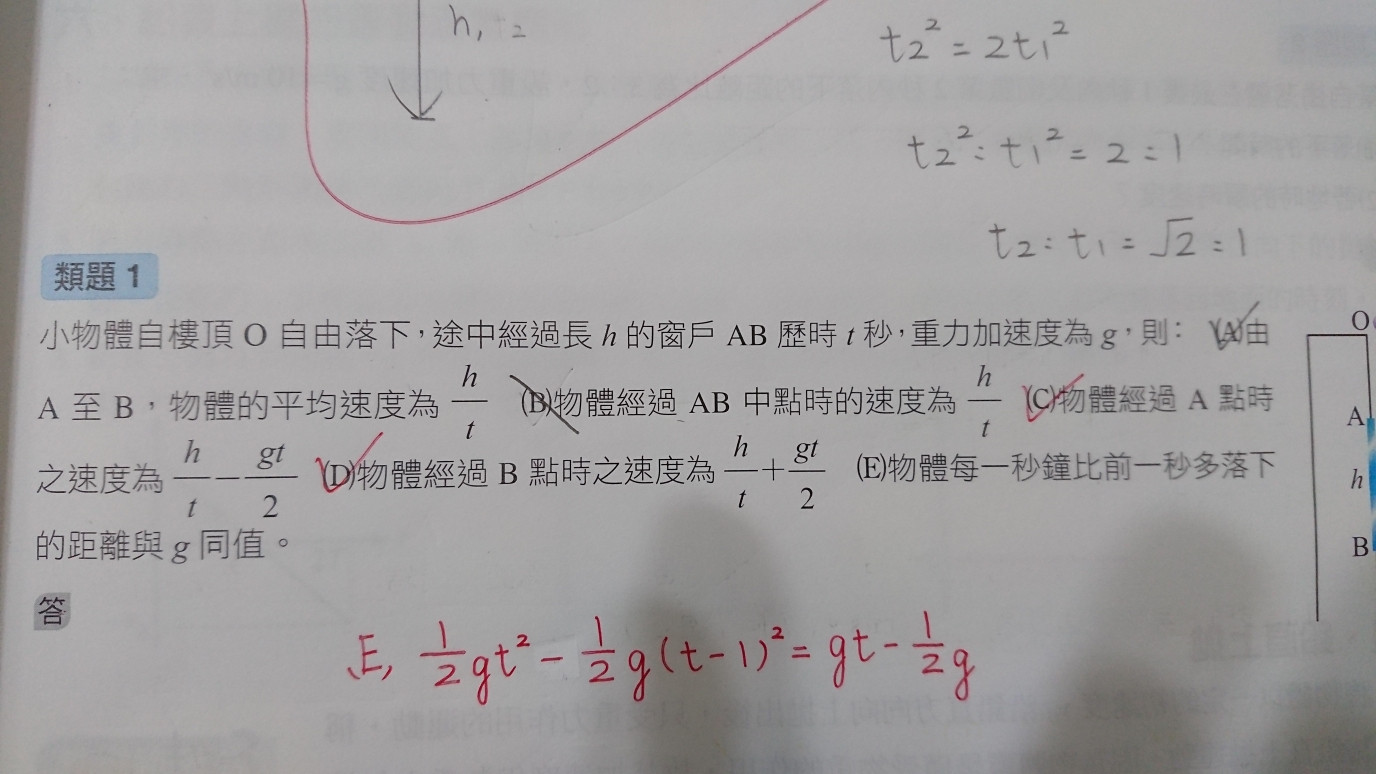 h, t₂
t₂² = 2t₁²
t₂² : t₁² = 2 : 1
t₂ : t₁ = √2 : 1
類題 1
小物體自樓頂 O 自由落下，途中經過長 h 的窗戶 AB 歷時 t 秒，重力加速度為 g，則： (A)由
A 至 B，物體的平均速度為 h/t (B)物體經過 AB 中點時的速度為 h/t (C)物體經過 A 點時
之速度為 h/t − gt/2 (D)物體經過 B 點時之速度為 h/t + gt/2 (E)物體每一秒鐘比前一秒多落下
的距離與 g 同值。
O
A
h
B
答
E, ½gt² − ½g(t−1)² = gt − ½g